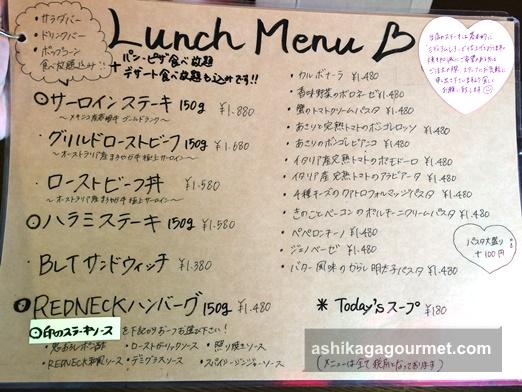 ・サラダバー
・ドリンクバー
・ポップコーン
食べ放題込み!!
Lunch Menu
+ パン・ピザ食べ放題
デザート食べ放題も込みです!!
サーロインステーキ 150g ¥1.880
・グリルドローストビーフ 150g ¥1.680
・ローストビーフ丼 ¥1.580
ハラミステーキ 150g ¥1.580
・BLTサンドウィッチ ¥1.380
REDNECKハンバーグ 150g ¥1.480
印のステーキソース
・REDNECK和風ソース ・デミグラスソース ・スパイシージンジャーソース
・ローストガーリックソース ・照り焼きソース
・カルボナーラ ¥1.480
・香味野菜のボロネーゼ ¥1.480
・蟹のトマトクリームパスタ ¥1.480
・あさりと完熟トマトのボンゴレロッソ ¥1.480
・あさりのボンゴレビアンコ ¥1.480
・イタリア産完熟トマトのポモドーロ ¥1.480
・イタリア産完熟トマトのアラビアータ ¥1.480
・4種チーズのクアトロフォルマッジパスタ ¥1.480
・きのことベーコンのポルチーニクリームパスタ ¥1.480
・ペペロンチーノ ¥1.480
・ジェノベーゼ ¥1.480
・バター風味のからし明太子パスタ ¥1.480
パスタ大盛り
+100円
* Today'sスープ ¥180
ashikagagourmet.com
(メニューは全て税別となっております)